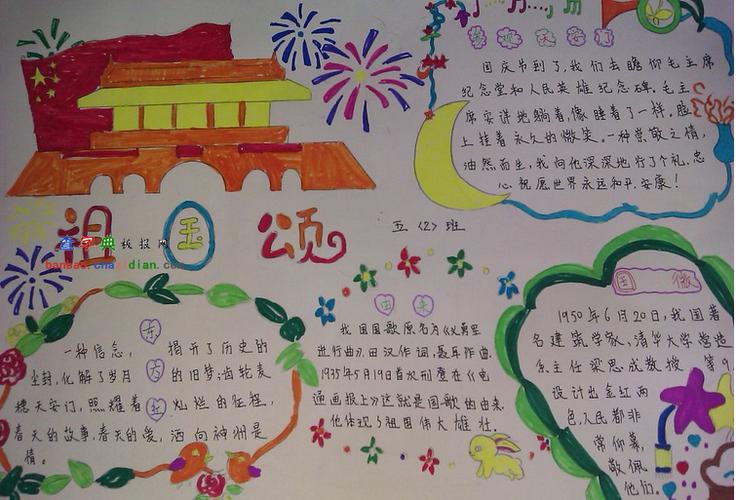 国庆节到了,我们去瞻仰毛主席
纪念堂和人民英雄纪念碑。毛主
席安详地躺着,像睡着了一样。脸
上挂着永久的微笑。一种崇敬之情,
油然而生,我向他深深地行了个礼,忠
心祝愿世界永远和平,安康!
祖国颂
五〈2〉班
查字典板报网
banbao.chazidian.com
东方红
一种信念, 揭开了历史的
尘封,化解了岁月 的旧梦;齿轮麦
穗天安门,照耀着 灿烂的征程,
春天的故事,春天的爱,洒向神州是
情。
由来
我国国歌原名为《义勇军
进行曲》,田汉作词,聂耳作曲。
1935年5月19日首次刊登在《电
通画报上》这就是国歌的由来。
他体现了祖国伟大雄壮。
国 微
1950年6月20日,我国著
名建筑学家,清华大学营造
系主任梁思成教授 等9
设计出金红两
色,人民都非
常仰慕,
敬佩
他们。